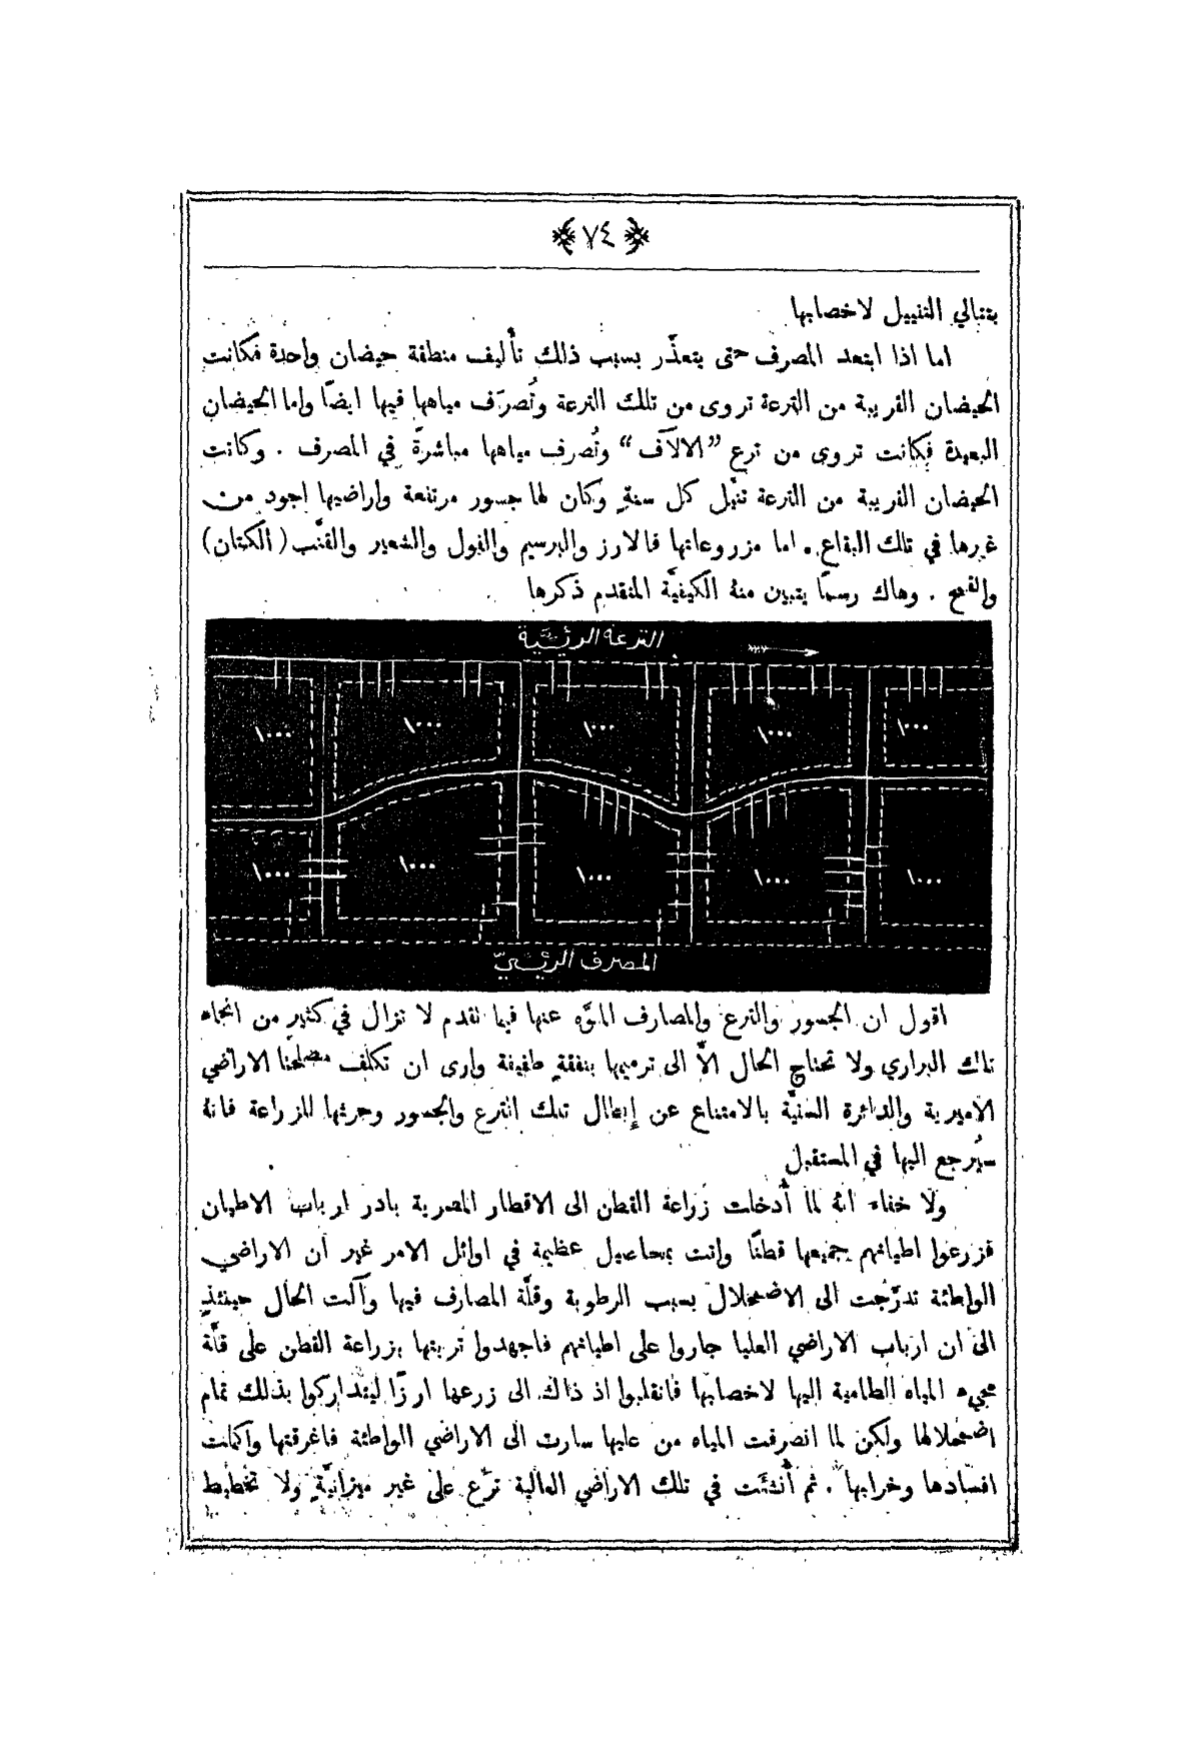 ﴿ ٧٤ ﴾
بتتالي التنييل لاخصابها
اما اذا ابتعد المصرف حتى يتعذَّر بسبب ذلك تأليف منطقة حيضان واحدة فكانت
الحيضان القريبة من الترعة تروى من تلك الترعة وتُصرَف مياهها فيها ايضًا واما الحيضان
البعيدة فكانت تروى من ترع ”الالآف“ وتُصرف مياهها مباشرةً في المصرف . وكانت
الحيضان القريبة من الترعة تنيَّل كل سنةٍ وكان لها جسور مرتفعة واراضيها اجود من
غيرها في تلك البقاع . اما مزروعاتها فالارز والبرسيم والفول والشعير والقنَّب (الكتان)
والقمح . وهاك رسمًا يتبين منهُ الكيفيَّة المتقدم ذكرها
الترعة الرئيسيَّة
١٠٠٠ ١٠٠٠ ١٠٠٠ ١٠٠٠ ١٠٠٠
١٠٠٠ ١٠٠٠ ١٠٠٠ ١٠٠٠ ١٠٠٠
المصرف الرئيسيّ
اقول ان الجسور والترع والمصارف المنوَّه عنها فيما تقدم لا تزال في كثيرٍ من انحاء
تلك البراري ولا تحتاج الحال الاَّ الى ترميمها بنفقةٍ طفيفة وارى ان تكلَّف مصلحتا الاراضي
الاميرية والدائرة السنيَّة بالامتناع عن إبطال تلك الترع والجسور وحرثها للزراعة فانهُ
سيُرجع اليها في المستقبل
ولا خفاء انهُ لما أُدخلت زراعة القطن الى الاقطار المصرية بادر ارباب الاطيان
فزرعوا اطيانهم جميعها قطنًا واتت بمحاصيل عظيمة في اوائل الامر غير ان الاراضي
الواطئة تدرَّجت الى الاضمحلال بسبب الرطوبة وقلَّة المصارف فيها وآلت الحال حينئذٍ
الى ان ارباب الاراضي العليا جاروا على اطيانهم فاجهدوا تربتها بزراعة القطن على قلَّة
مجيء المياه الطامية اليها لاخصابها فانقلبوا اذ ذاك الى زرعها ارزًّا ليتداركوا بذلك تمام
اضمحلالها ولكن لما انصرفت المياه من عليها سارت الى الاراضي الواطئة فاغرقتها واكملت
افسادها وخرابها . ثم أُنشئَت في تلك الاراضي العالية ترَع على غير ميزانيَّةٍ ولا تخطيط